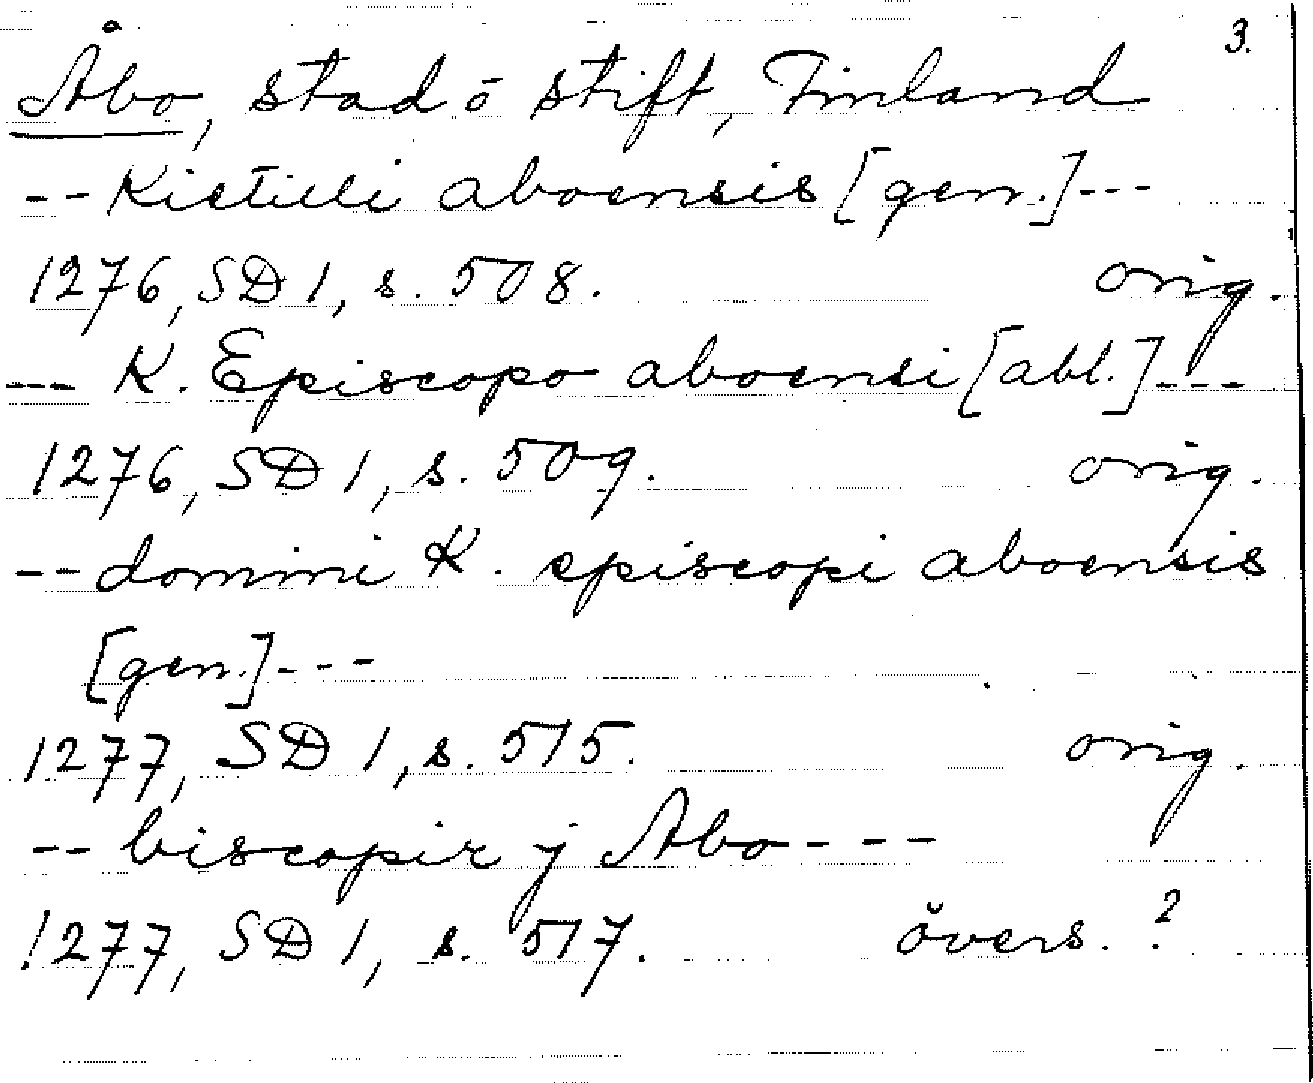 3.
Åbo, stad ō stift, Finland
-- Kietilli aboensis [gen.] ---
1276, SD 1, s. 508. orig.
--- K. Episcopo aboensi [abl.] ---
1276, SD 1, s. 509. orig.
-- domini K. episcopi aboensis
[gen.] ---
1277, SD 1, s. 515. orig.
-- biscopir j Abo ----
1277, SD 1, s. 517. övers. ?